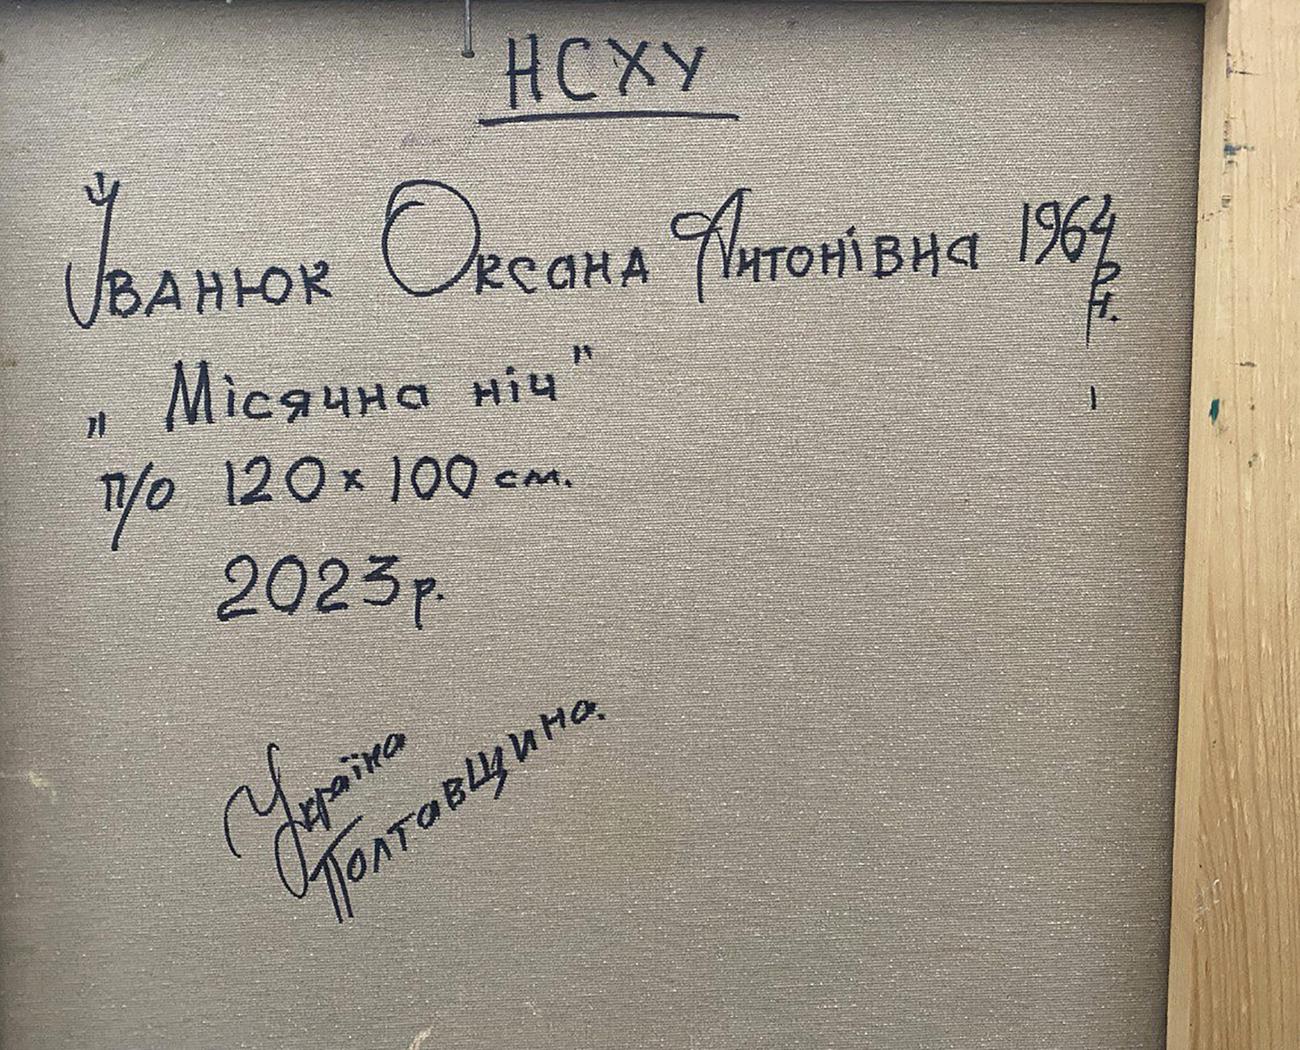 НСХУ
Іванюк Оксана Антонівна 1964 р.н.
„Місячна ніч”
п/о 120 x 100 см.
2023 р.
Україна
Полтавщина.